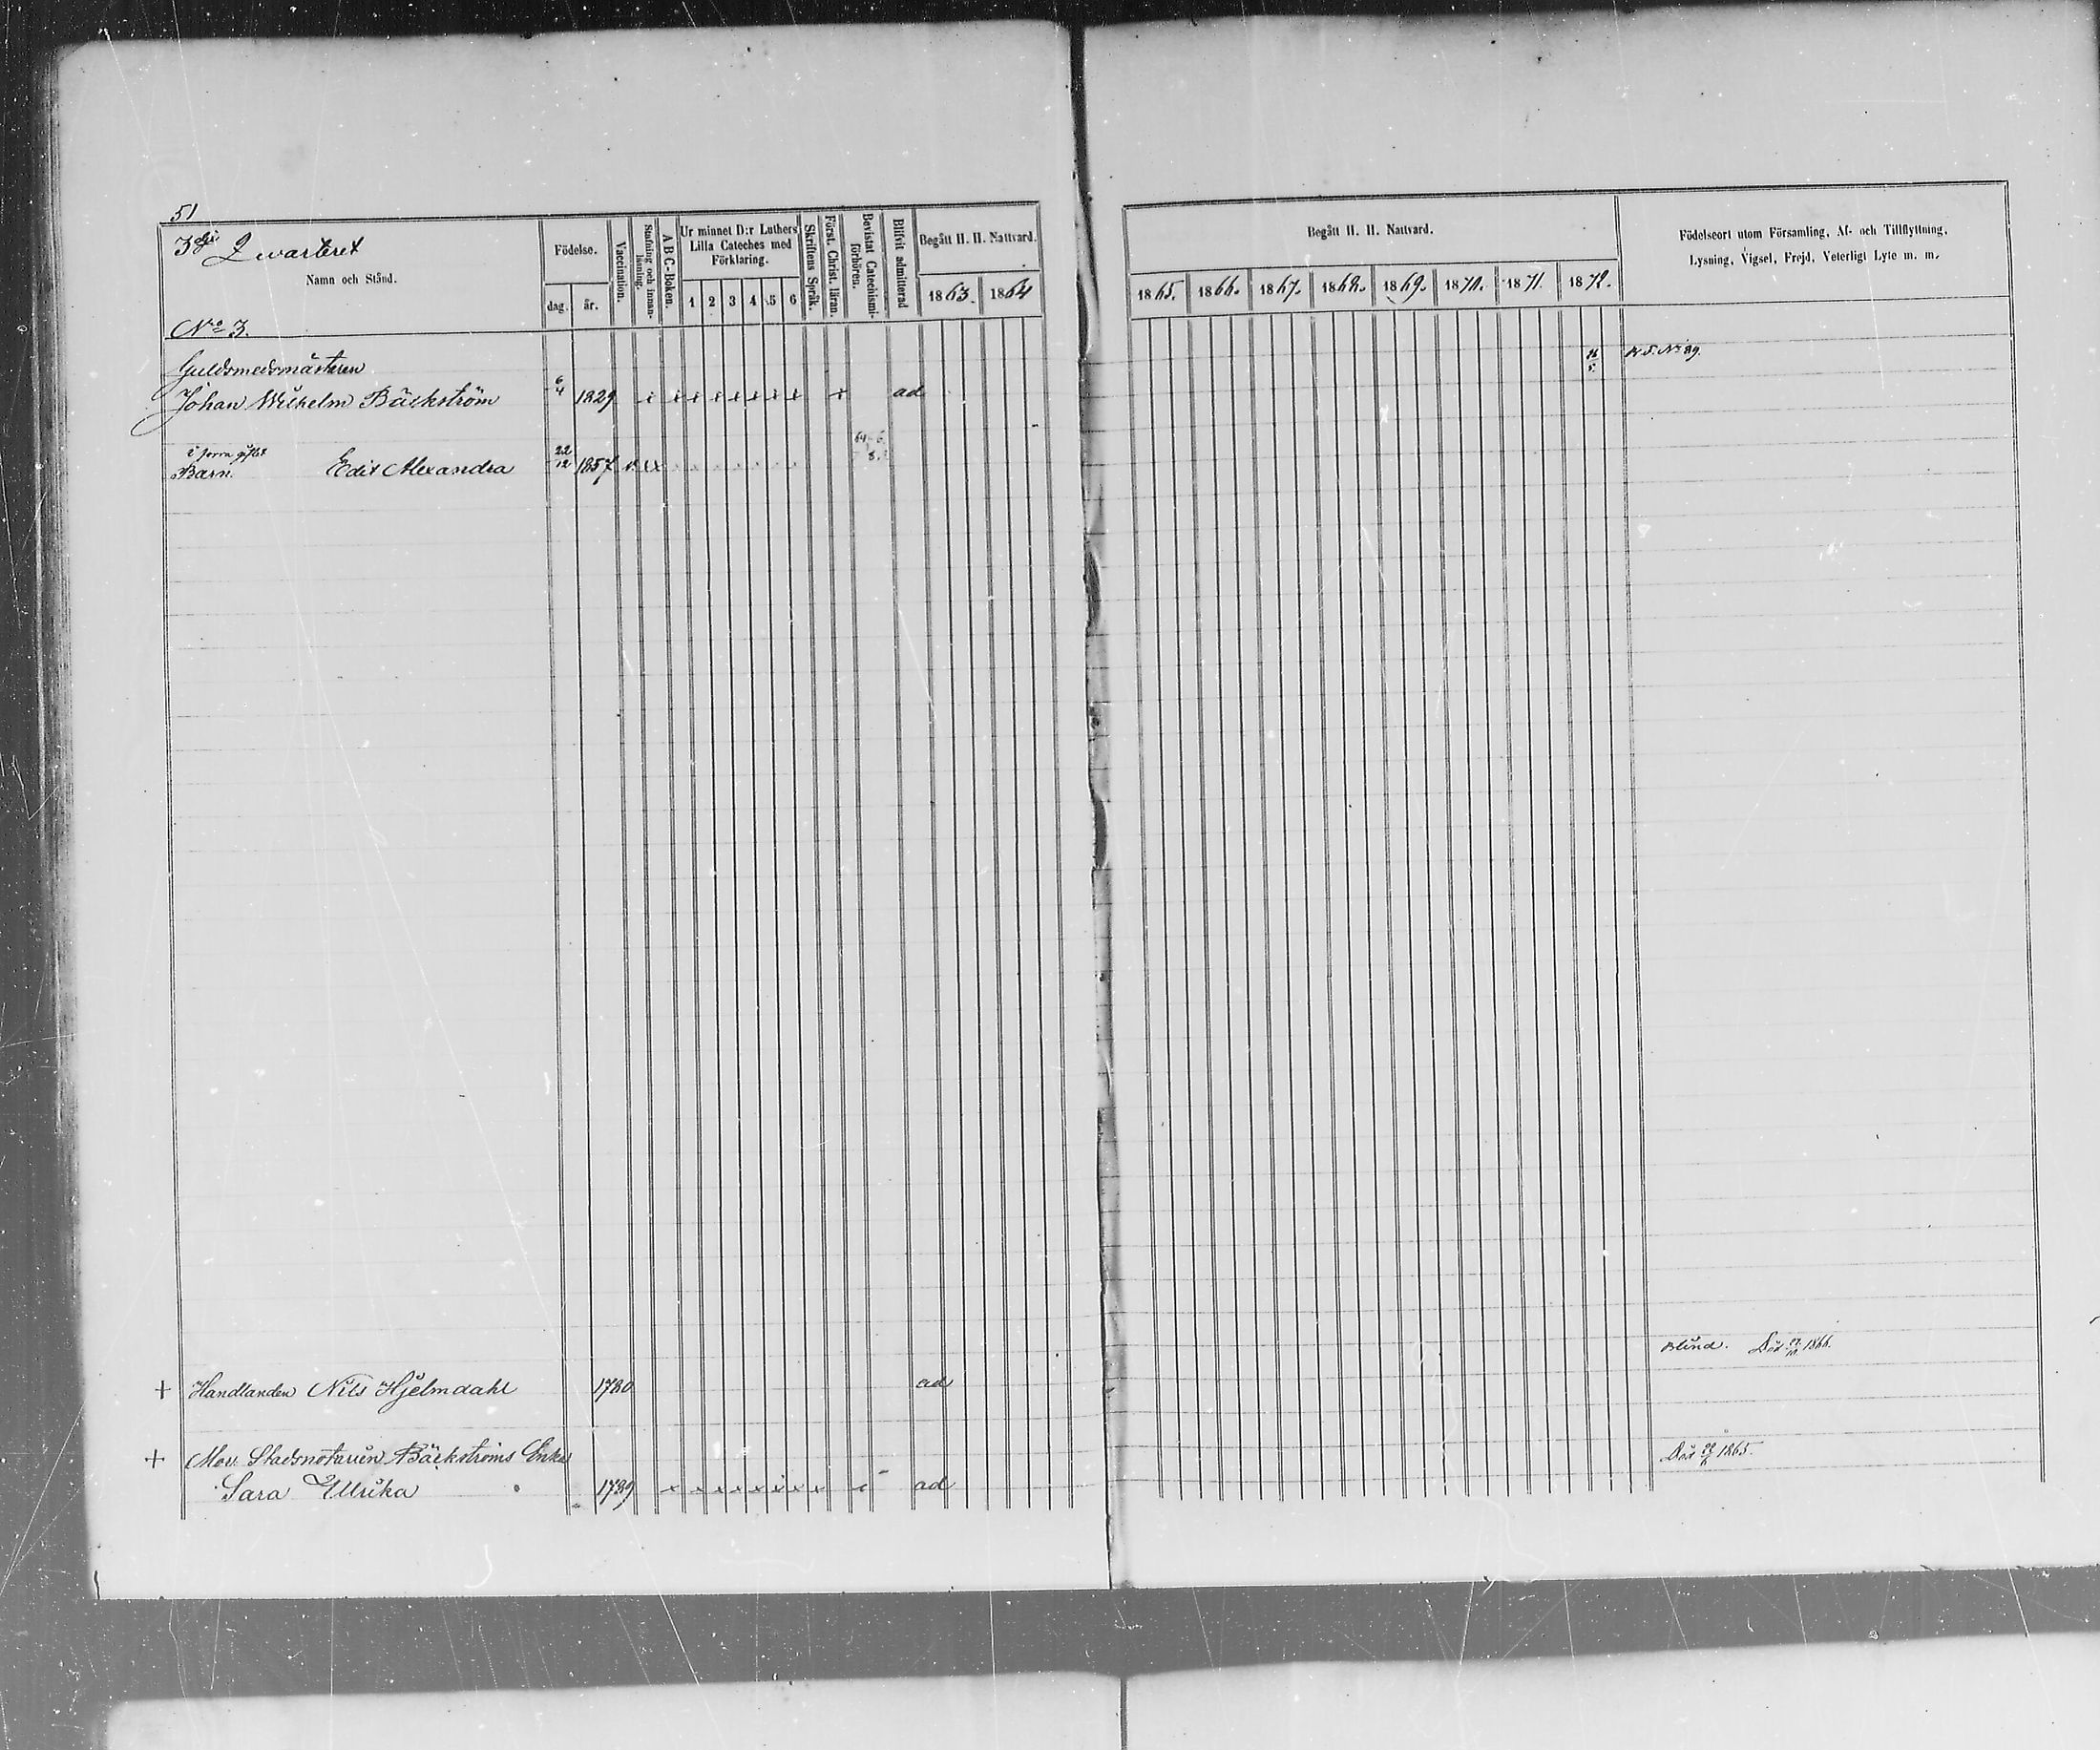 51
3dje Qwarteret
Namn och Stånd.
Födelse.
dag.
år.
Vaccination.
Stafning och innan-läsning.
A B C-Boken.
Ur minnet D:r Luthers
Lilla Cateches med
Förklaring.
1 2 3 4 5 6
Skriftens Språk.
Först. Christ. läran.
Bevistat Catechismi-förhören.
Blifvit admitterad
Begått H. H. Nattvard.
1863. 1864
Begått H. H. Nattvard.
1865. 1866. 1867. 1868. 1869. 1870. 1871. 1872.
Födelseort utom Församling, Af- och Tillflyttning,
Lysning, Vigsel, Frejd, Veterligt Lyte m. m.
No 3.
Guldsmedsmästaren
Johan Wilhelm Bäckström 6/4 1829 x x x x x x x x x ad
i förra giftet
Barn. Edit Alexandra 22/12 1857 v.
64-6
8.
Blind. Död 1866.
+ Handlanden Nils Hjelmdahl 1780 ad
+ Stadsnotarien Bäckströms Enka Död 1865.
Sara Ulrika 1789 x x x x x x x x ad